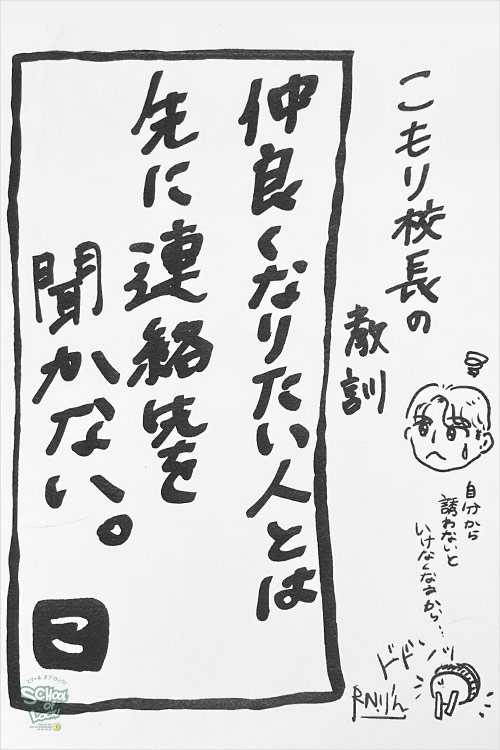 こもり校長の
教訓
仲良くなりたい人とは
先に連絡先を
聞かない。
こ
自分から
誘わないと
いけなくなるから…
ドドンッ
スクール オブ ロック!
SCHOOL
OF
LOCK!